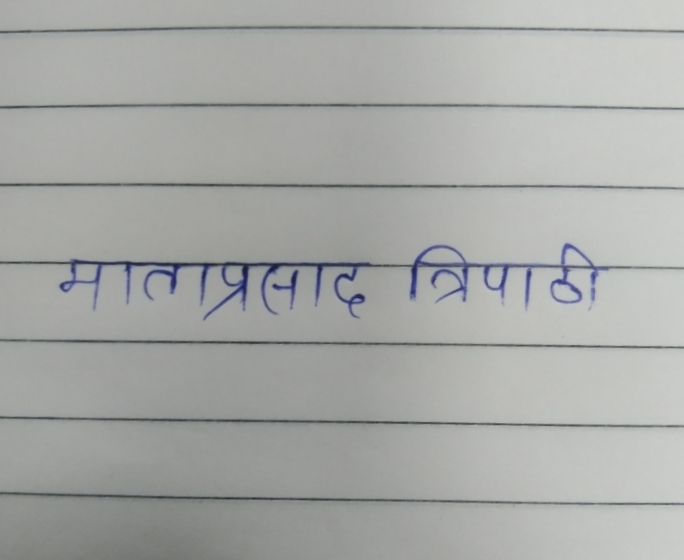 माताप्रसाद त्रिपाठी